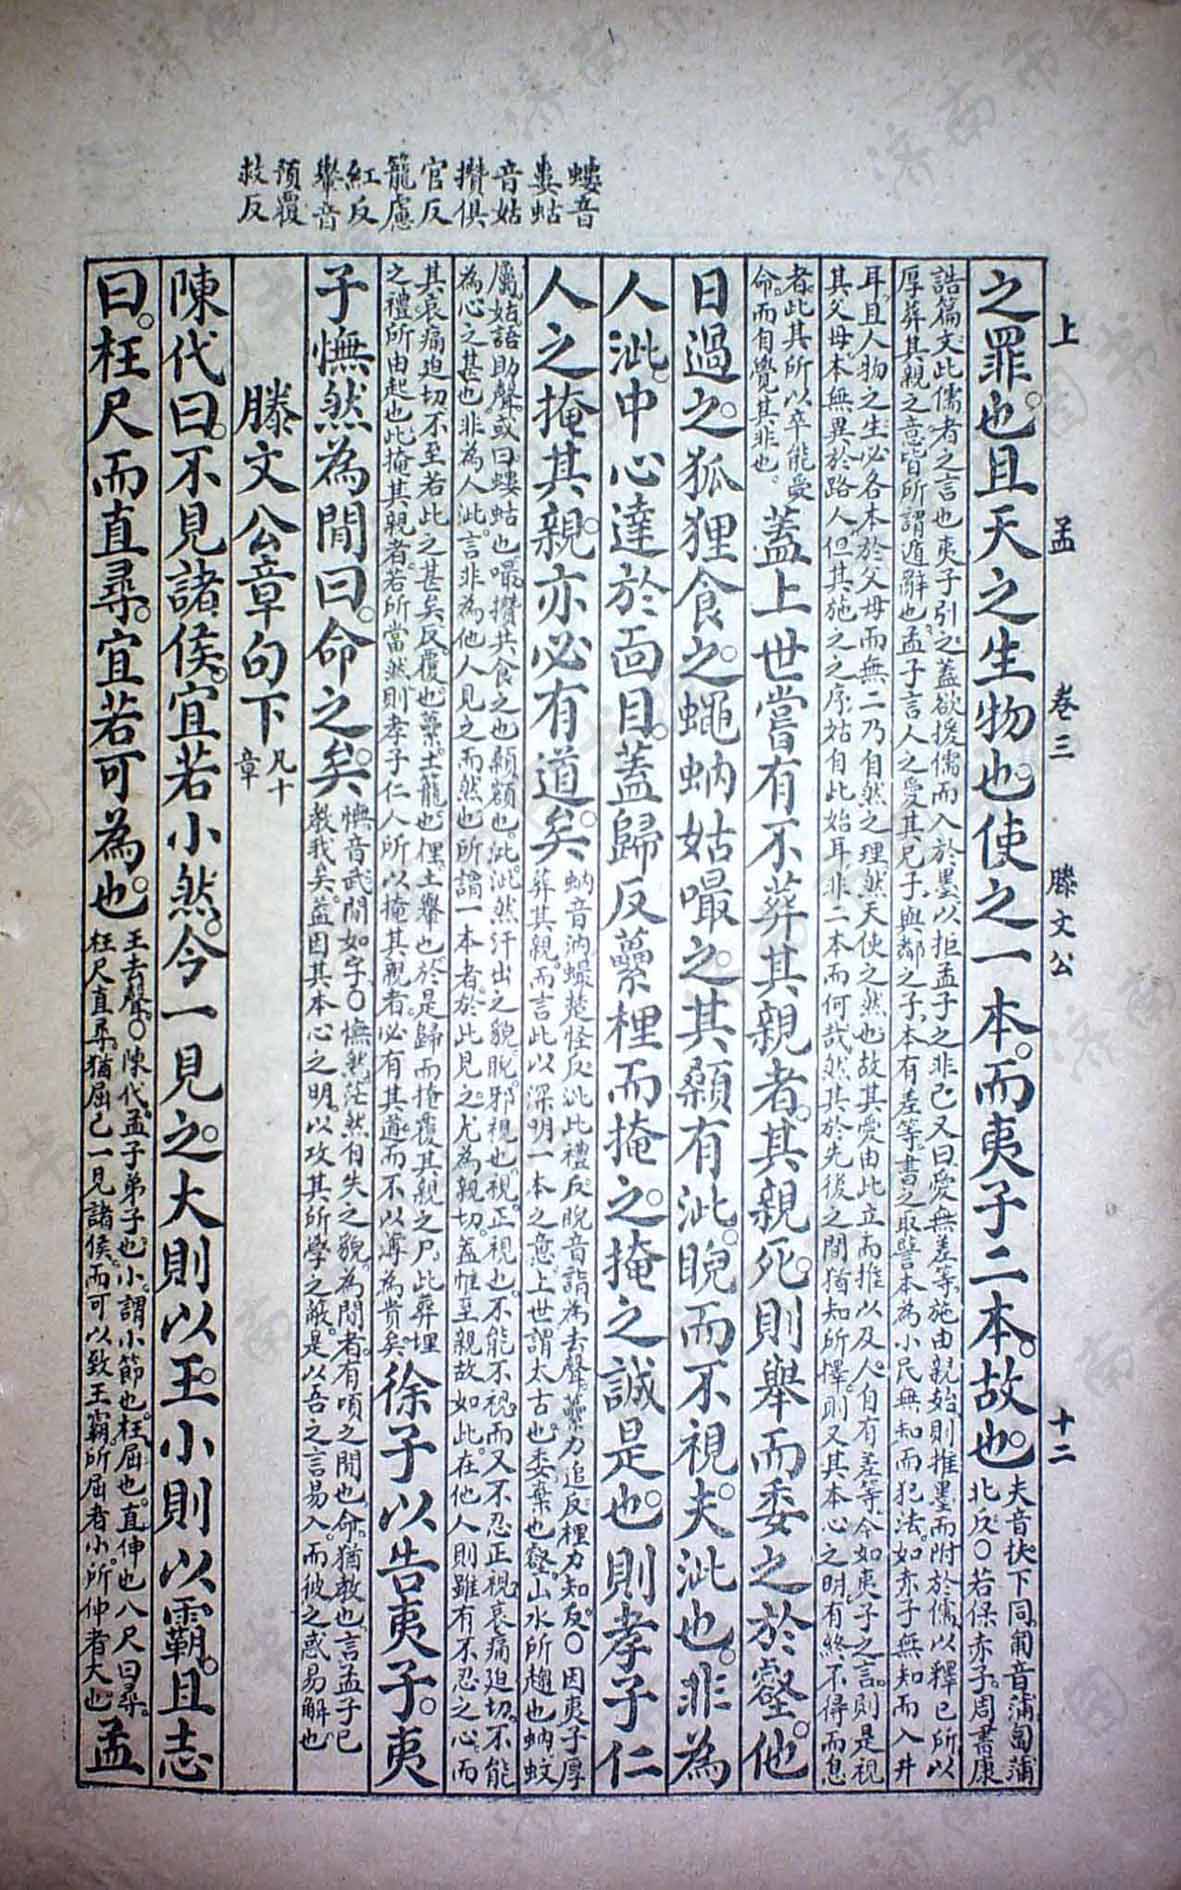 上 孟 卷三 滕文公 十二
螻音
婁蛄
音姑
攢俱
官反
籠慮
紅反
轝音
預覆
救反
之罪也。且天之生物也。使之一本。而夷子二本。故也。
夫音扶下同。匍音蒲匐蒲
北反。○若保赤子。周書康
誥篇文此儒者之言也夷子引之蓋欲援儒而入於墨以拒孟子之非己又曰愛無差等施由親始則推墨而附於儒以釋己所以
厚葬其親之意皆所謂遁辭也。孟子言人之愛其兄子與鄰之子本有差等書之取譬本為小民無知而犯法。如赤子無知而入井
耳且人物之生必各本於父母而無二乃自然之理然天使之然也故其愛由此立而推以及人自有差等今如夷子之言則是視
其父母本無異於路人但其施之之序姑自此始耳非二本而何哉然其於先後之間猶知所擇則又其本心之明有終不得而息
者此其所以卒能受
命而自覺其非也。
蓋上世嘗有不葬其親者。其親死。則舉而委之於壑。他
日過之。狐狸食之。蠅蚋姑嘬之。其顙有泚。睨而不視。夫泚也。非為
人泚。中心達於面目。蓋歸反虆梩而掩之。掩之誠是也。則孝子仁
人之掩其親。亦必有道矣。
蚋音汭嘬楚怪反泚此禮反睨音詣為去聲虆力追反梩力知反○因夷子厚
葬其親而言此以深明一本之意上世謂太古也委棄也壑山水所趨也蚋蚊
屬姑語助聲或曰螻蛄也嘬攢共食之也顙額也泚泚然汗出之貌睨邪視也視正視也不能不視而又不忍正視哀痛迫切不能
為心之甚也非為人泚言非為他人見之而然也所謂一本者於此見之尤為親切蓋惟至親故如此在他人則雖有不忍之心而
其哀痛迫切不至若此之甚矣反覆也虆土籠也梩土轝也於是歸而掩覆其親之尸此葬埋
之禮所由起也此掩其親者若所當然則孝子仁人所以掩其親者必有其道而不以薄為貴矣
徐子以告夷子。夷
子憮然為閒曰。命之矣。
憮音武閒如字○憮然茫然自失之貌為閒者有頃之閒也命猶教也言孟子已
教我矣。蓋因其本心之明以攻其所學之蔽是以吾之言易入而彼之惑易解也
滕文公章句下
凡十
章
陳代曰。不見諸侯。宜若小然。今一見之大則以王。小則以霸。且志
曰。枉尺而直尋。宜若可為也。
王去聲○陳代孟子弟子也小謂小節也枉屈也直伸也八尺曰尋
枉尺直尋猶屈己一見諸侯而可以致王霸所屈者小所伸者大也
孟